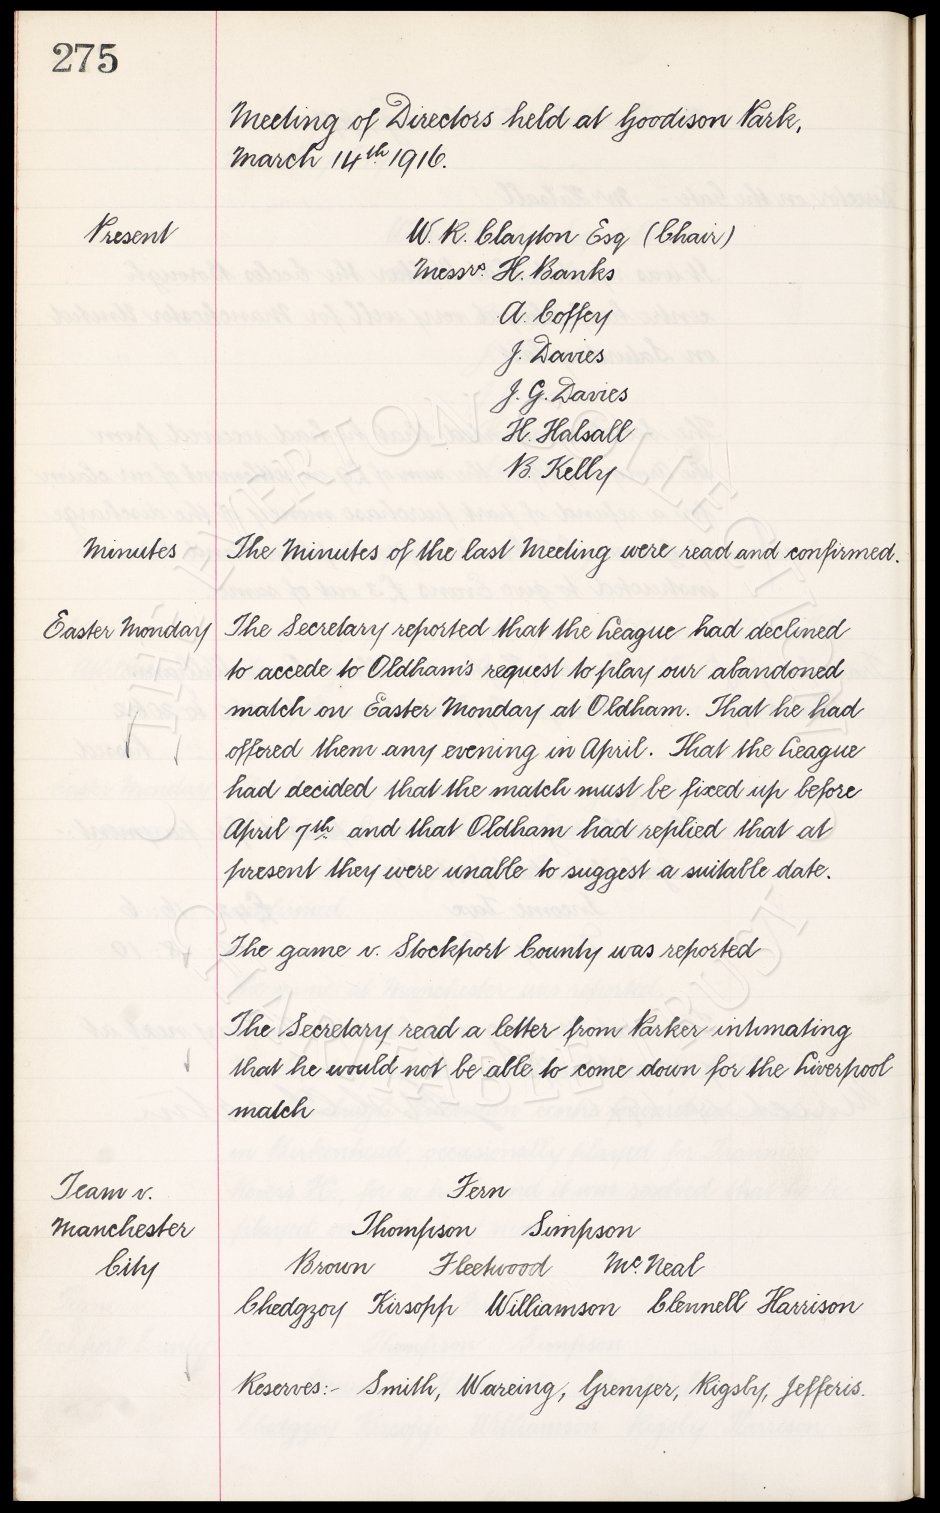 275
Meeting of Directors held at Goodison Park,
March 14th 1916.
Present
W. R. Clayton Esq (Chair)
Messrs. H. Banks
A. Coffey
J. Davies
J. G. Davies
H. Halsall
B. Kelly
Minutes
The Minutes of the last Meeting were read and confirmed.
Easter Monday
The Secretary reported that the League had declined
to accede to Oldham's request to play our abandoned
match on Easter Monday at Oldham. That he had
offered them any evening in April. That the League
had decided that the match must be fixed up before
April 7th and that Oldham had replied that at
present they were unable to suggest a suitable date.
The game v. Stockport County was reported
The Secretary read a letter from Parker intimating
that he would not be able to come down for the Liverpool
match
Team v.
Manchester
City
Fern
Thompson Simpson
Brown Fleetwood Mc.Neal
Chedgzoy Kirsopp Williamson Clennell Harrison
Reserves:- Smith, Wareing, Grenyer, Rigsby, Jefferis.